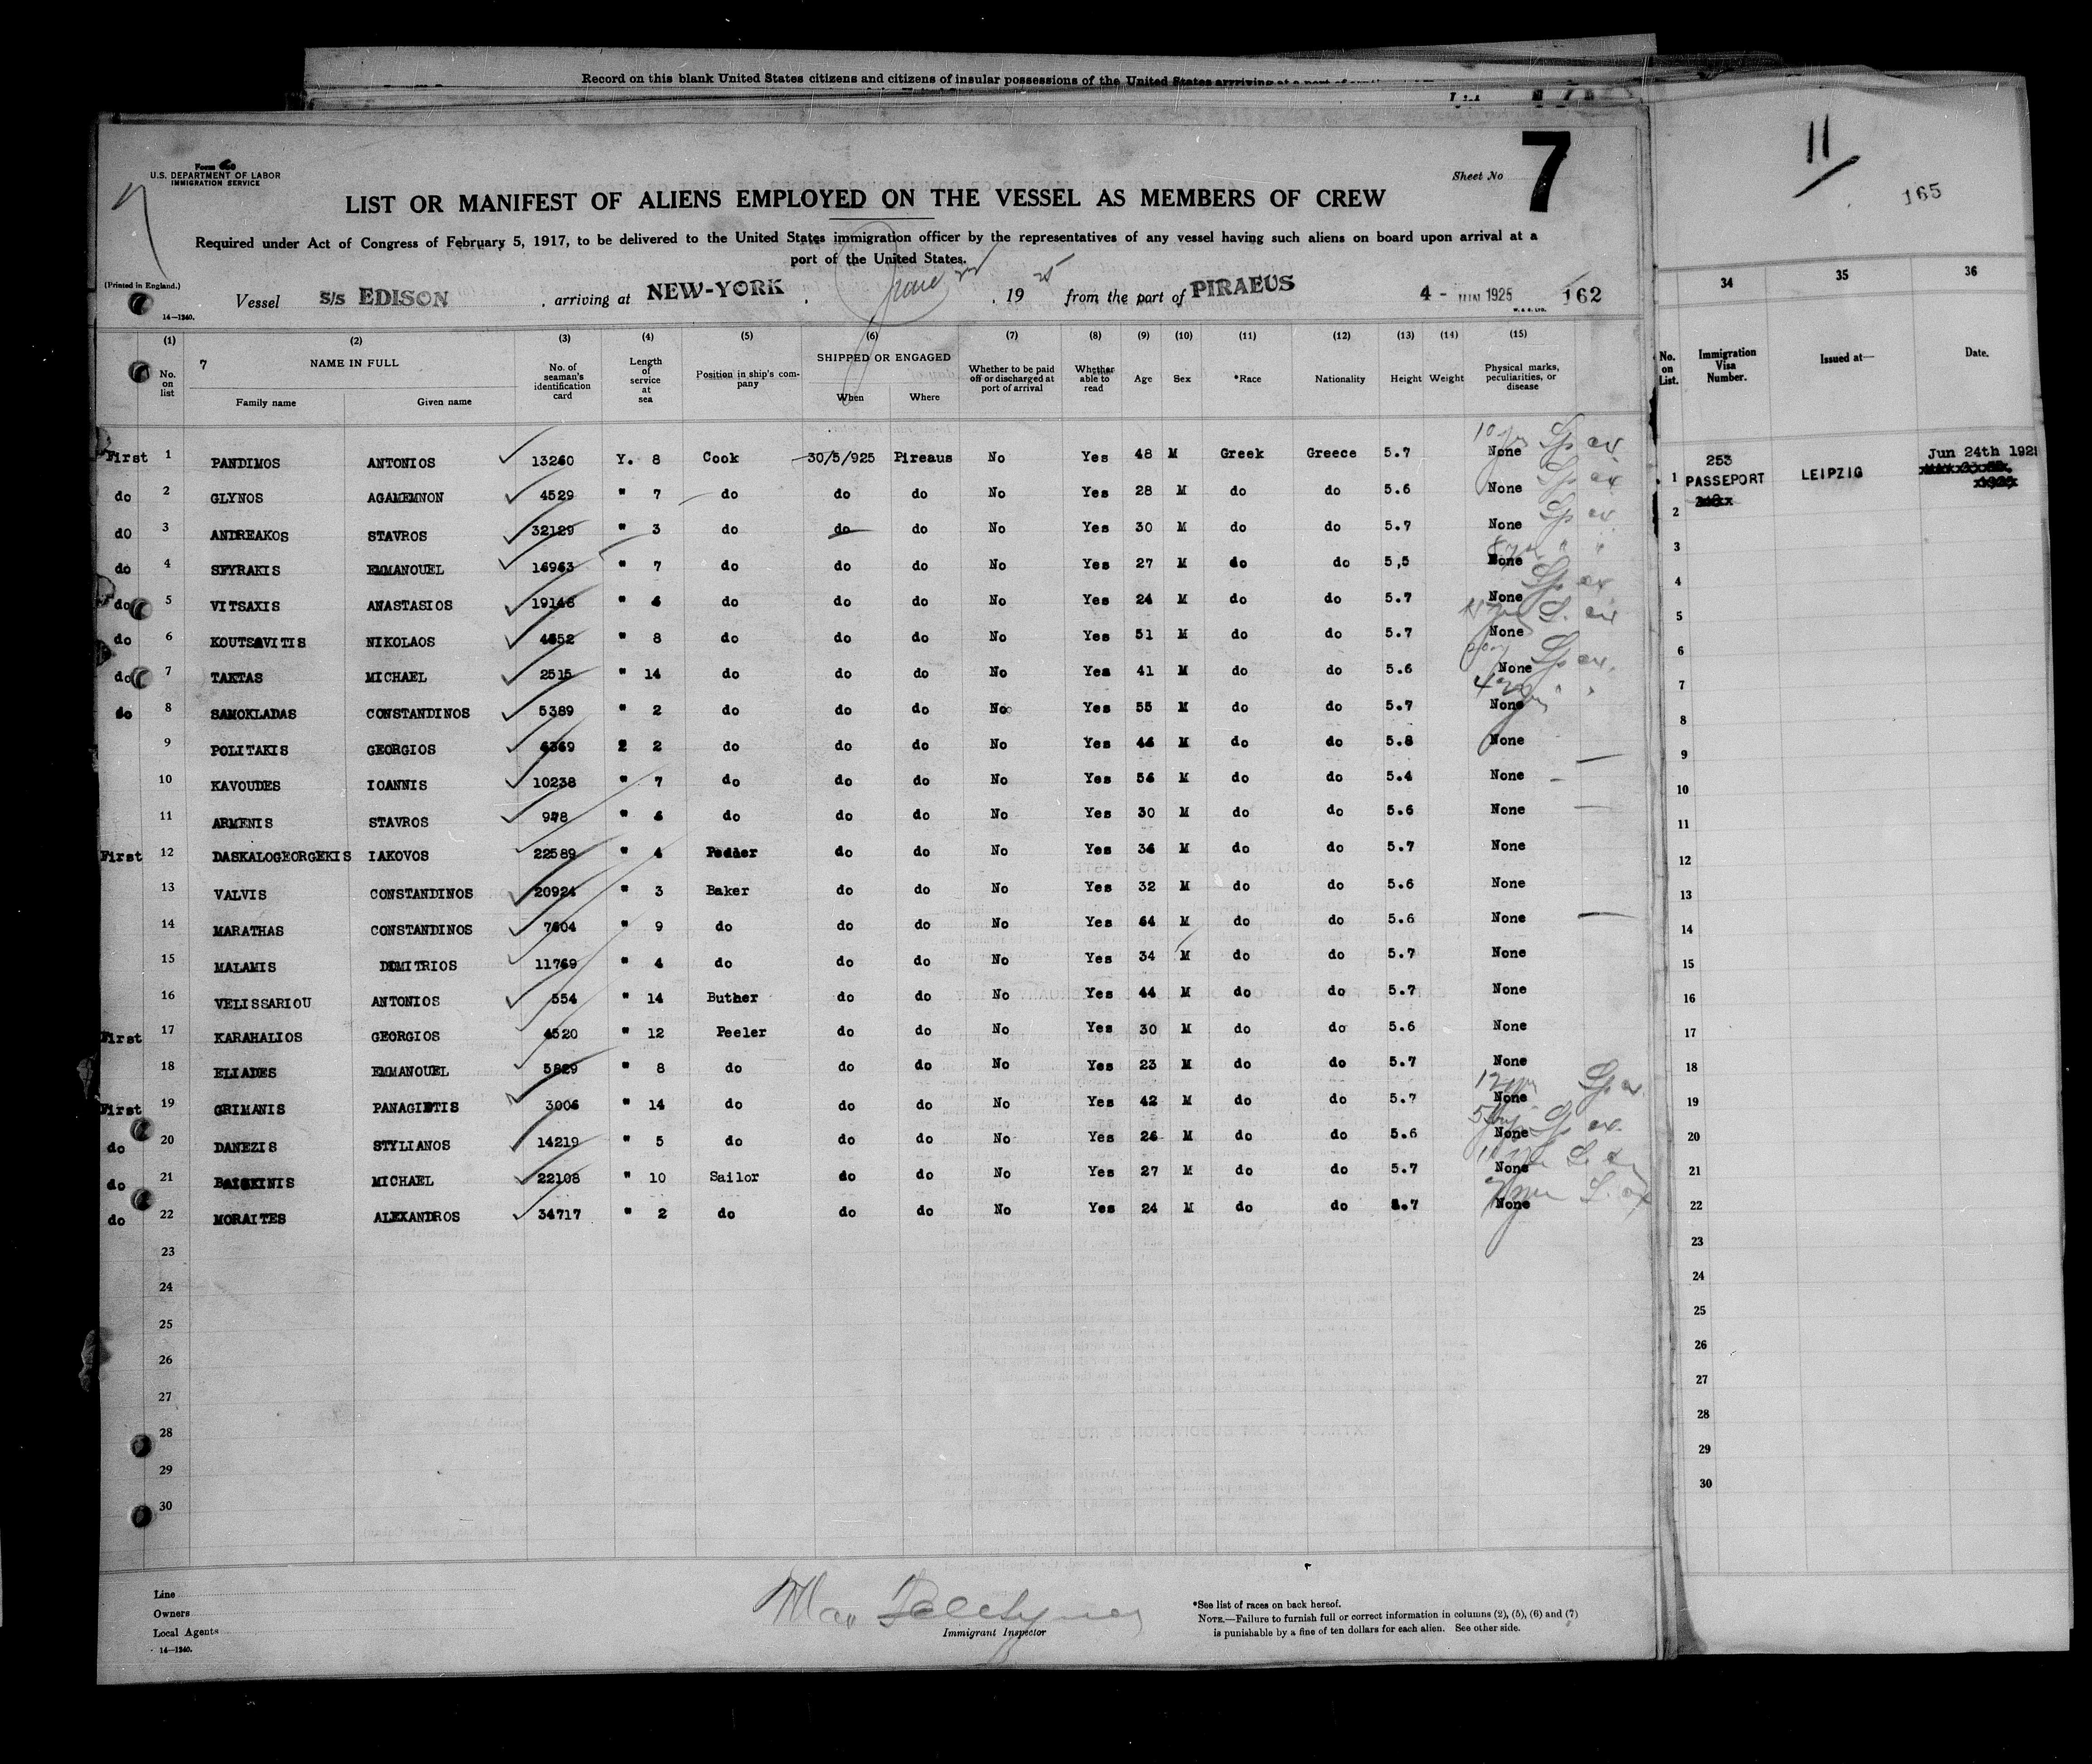 Record on this blank United States citizens and citizens of insular possessions of the United States arriving at a port of
Form
U.S. DEPARTMENT OF LABOR
IMMIGRATION SERVICE
Sheet No 7
LIST OR MANIFEST OF ALIENS EMPLOYED ON THE VESSEL AS MEMBERS OF CREW
Required under Act of Congress of February 5, 1917, to be delivered to the United States immigration officer by the representatives of any vessel having such aliens on board upon arrival at a
port of the United States.
(Printed in England.)
Vessel S/S EDISON , arriving at NEW-YORK , June 22 , 1925 from the port of PIRAEUS 4 - JUN 1925 162
14—1240. W. & S. LTD.
(1) (2) (3) (4) (5) (6) (7) (8) (9) (10) (11) (12) (13) (14) (15)
No. on list 7 NAME IN FULL Family name Given name No. of seaman's identification card Length of service at sea Position in ship's company SHIPPED OR ENGAGED When Where Whether to be paid off or discharged at port of arrival Whether able to read Age Sex *Race Nationality Height Weight Physical marks, peculiarities, or disease
First 1 PANDIMOS ANTONIOS 13260 Y. 8 Cook 30/5/925 Pireaus No Yes 48 M Greek Greece 5.7 None
do 2 GLYNOS AGAMEMNON 4529 " 7 do do do No Yes 28 M do do 5.6 None
dO 3 ANDREAKOS STAVROS 32129 " 3 do do do No Yes 30 M do do 5.7 None
do 4 SFYRAKIS EMMANOUEL 16963 " 7 do do do No Yes 27 M do do 5,5 None
do 5 VITSAXIS ANASTASIOS 19146 " 6 do do do No Yes 24 M do do 5.7 None
do 6 KOUTSAVITIS NIKOLAOS 4652 " 8 do do do No Yes 51 M do do 5.7 None
do 7 TAKTAS MICHAEL 2515 " 14 do do do No Yes 41 M do do 5.6 None
do 8 SAMOKLADAS CONSTANDINOS 5389 " 2 do do do No Yes 55 M do do 5.7 None
9 POLITAKIS GEORGIOS 6369 2 2 do do do No Yes 46 M do do 5.8 None
10 KAVOUDES IOANNIS 10238 " 7 do do do No Yes 56 M do do 5.4 None
11 ARMENIS STAVROS 978 " 6 do do do No Yes 30 M do do 5.6 None
First 12 DASKALOGEORGEKIS IAKOVOS 22589 " 4 do do No Yes 36 M do do 5.7 None
13 VALVIS CONSTANDINOS 20924 " 3 Baker do do No Yes 32 M do do 5.6 None
14 MARATHAS CONSTANDINOS 7604 " 9 do do do No Yes 64 M do do 5.6 None
15 MALAMIS DIMITRIOS 11769 " 4 do do do No Yes 34 M do do 5.7 None
16 VELISSARIOU ANTONIOS 554 " 14 Buther do do No Yes 44 M do do 5.7 None
First 17 KARAHALIOS GEORGIOS 4520 " 12 Peeler do do No Yes 30 M do do 5.6 None
18 ELIADES EMMANOUEL 5829 " 8 do do do No Yes 23 M do do 5.7 None
First 19 GRIMANIS PANAGIOTIS 3006 " 14 do do do No Yes 42 M do do 5.7 None
do 20 DANEZIS STYLIANOS 14219 " 5 do do do No Yes 26 M do do 5.6 None
do 21 MICHAEL 22108 " 10 Sailor do do No Yes 27 M do do 5.7 None
do 22 MORAITES ALEXANDROS 34717 " 2 do do do No Yes 24 M do do 5.7 None
23
24
25
26
27
28
29
30
Line
Owners
Local Agents
14—1240.
Immigrant Inspector
*See list of races on back hereof.
NOTE.—Failure to furnish full or correct information in columns (2), (5), (6) and (7)
is punishable by a fine of ten dollars for each alien. See other side.
11
165
34 35 36
No. on List. Immigration Visa Number. Issued at— Date.
253 Jun 24th 192
1 PASSEPORT LEIPZIG
2
3
4
5
6
7
8
9
10
11
12
13
14
15
16
17
18
19
20
21
22
23
24
25
26
27
28
29
30